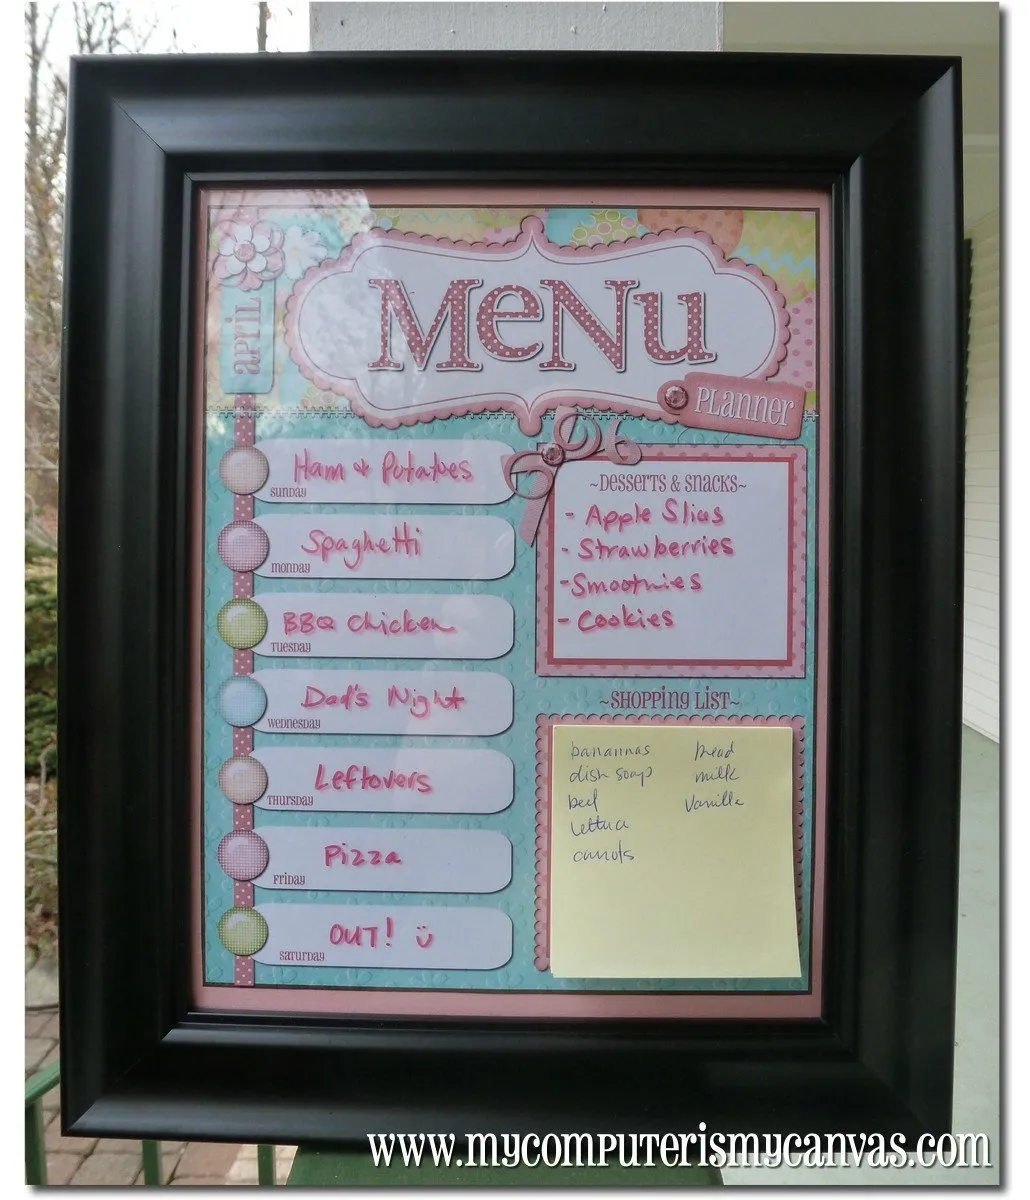 APRIL
MeNu
PLanner
Ham & Potatoes
SUNDAY
Spaghetti
MONDAY
BBQ Chicken
TUESDAY
Dad's Night
WEDNESDAY
Leftovers
THURSDAY
Pizza
FRIDAY
OUT!
SATURDAY
~DESSERTS & SNACKS~
- Apple Slices
- Strawberries
- Smoothies
- Cookies
~SHOPPING LIST~
banannas
dish soap
beef
lettuce
carrots
bread
milk
vanilla
www.mycomputerismycanvas.com